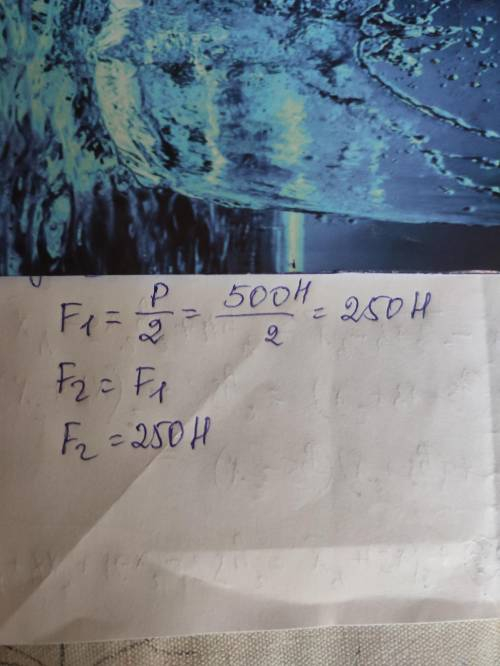 F₁ = P/2 = 500Н/2 = 250Н
F₂ = F₁
F₂ = 250Н